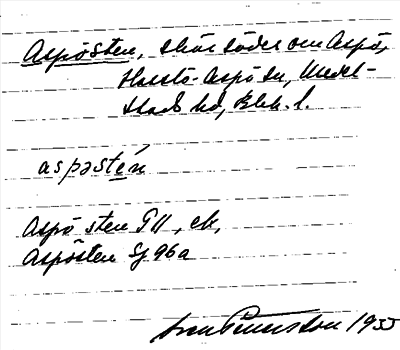 Aspösten, skär söder om Aspö,
Hasslö-Aspö sn, Medel-
stads hd, Blek. l.
aspəstén
Aspö sten GII, ek,
Aspösten Sj 96a
1955